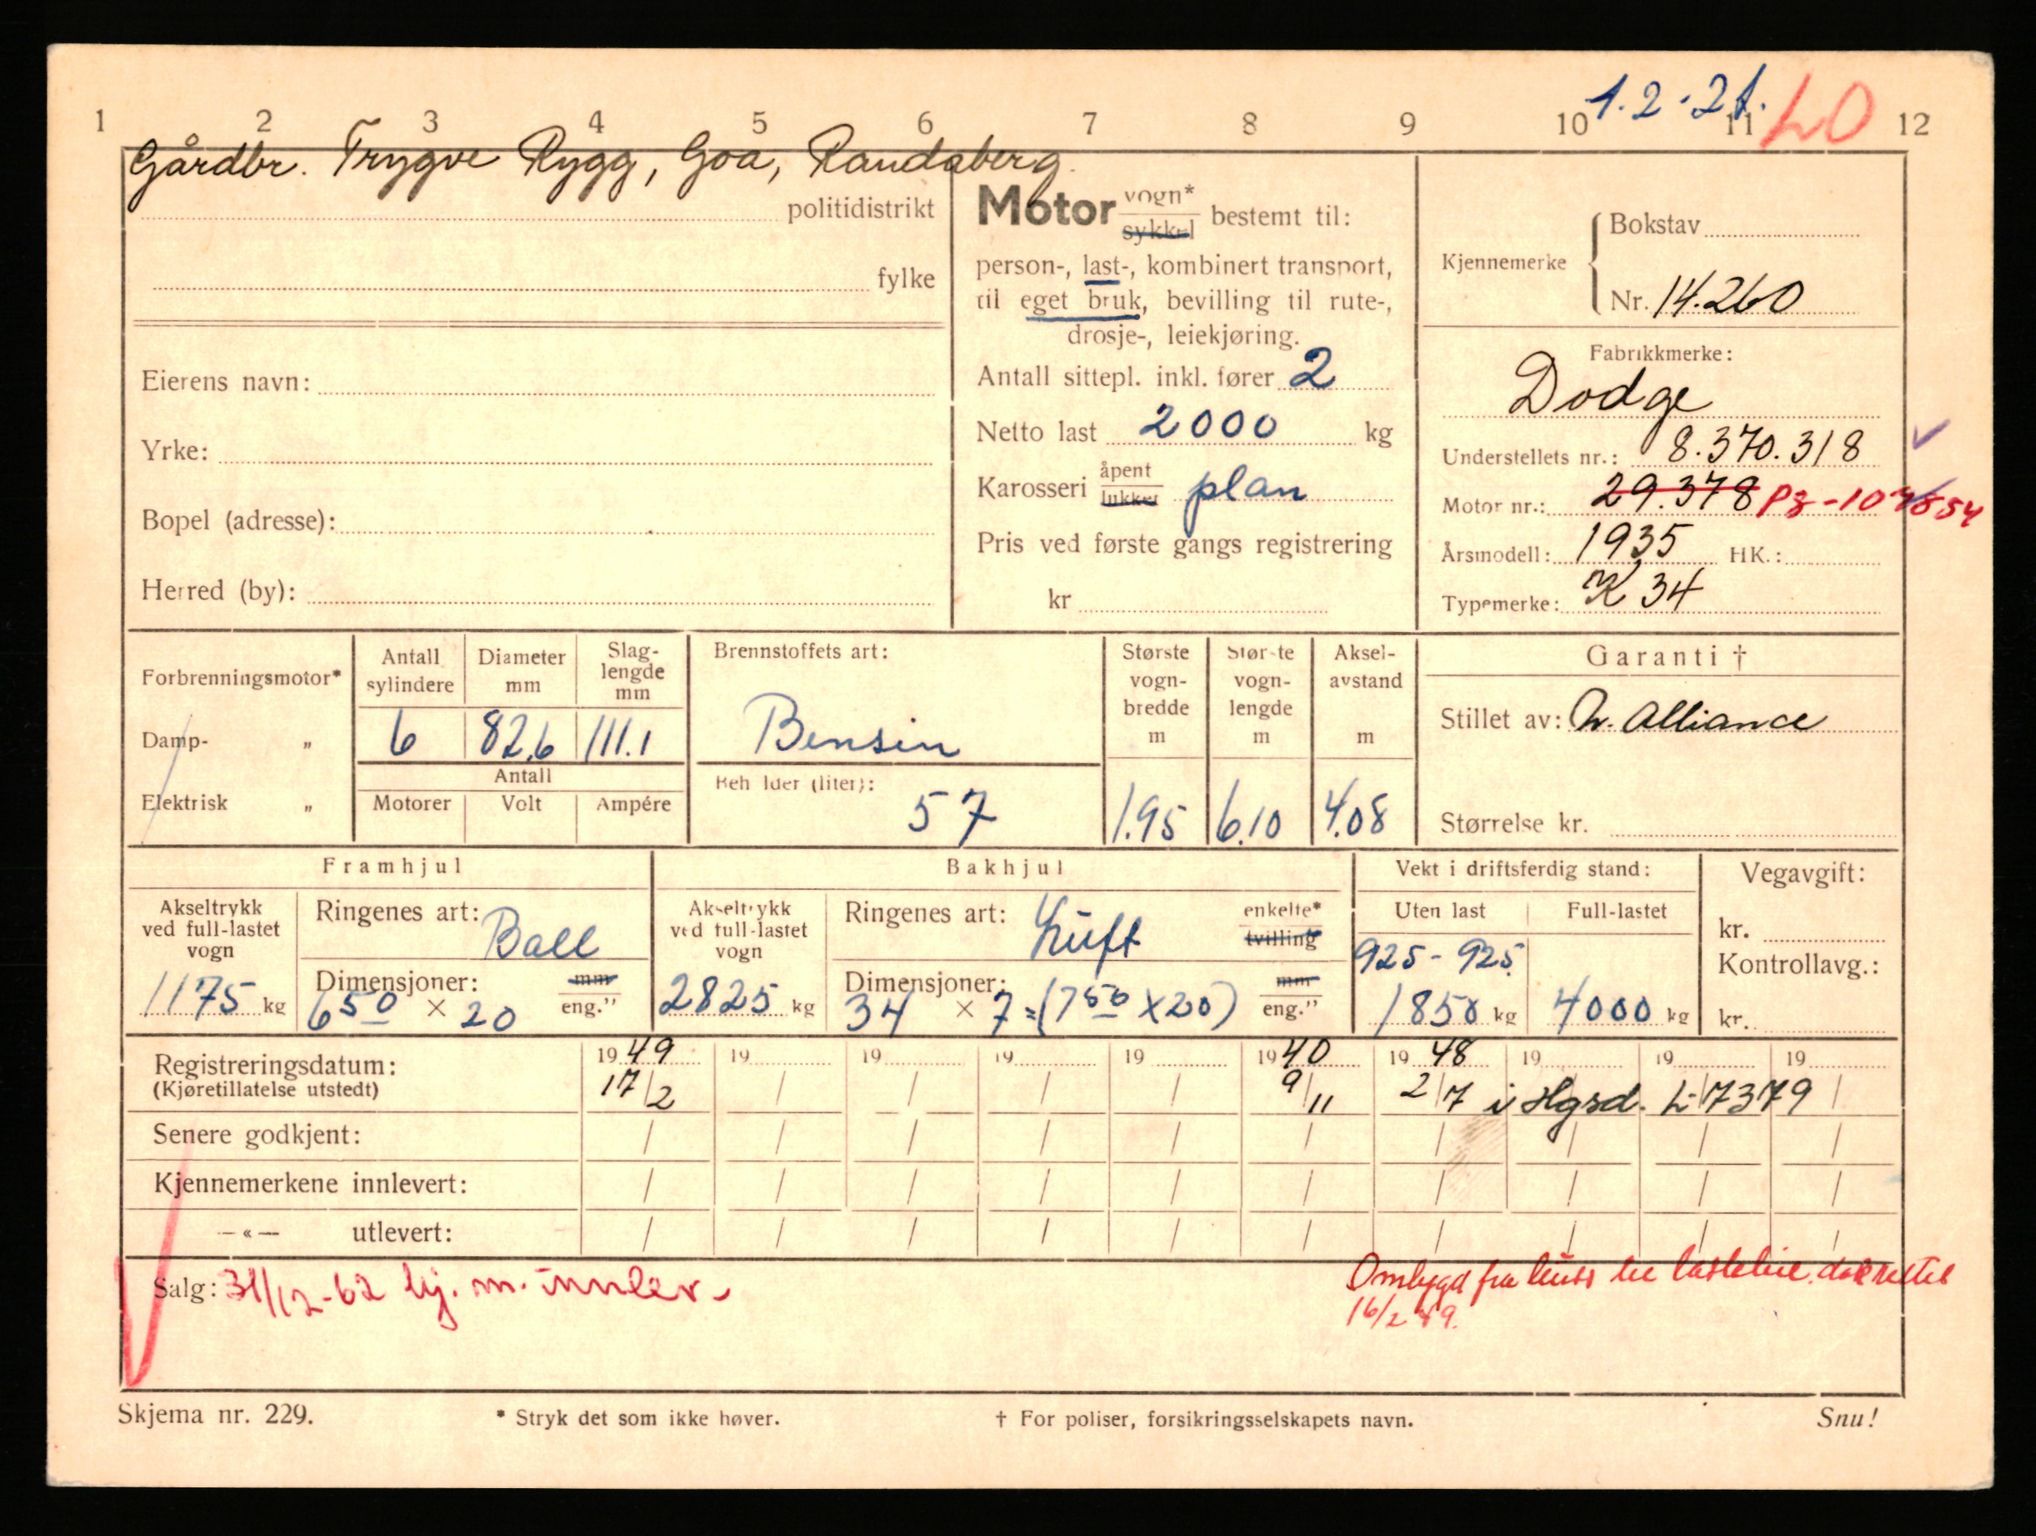 1.2.21. LO
1 2 3 4 5 6 7 8 9 10 11 12
Gårdbr. Trygve Rygg, Goa, Randaberg.
politidistrikt
fylke
Eierens navn:
Yrke:
Bopel (adresse):
Herred (by):
Motor vogn* sykkel bestemt til:
person-, last-, kombinert transport,
til eget bruk, bevilling til rute-,
drosje-, leiekjøring.
Antall sittepl. inkl. fører 2
Netto last 2000 kg
Karosseri åpent lukket plan
Pris ved første gangs registrering
kr
Kjennemerke
Bokstav
Nr. 14.260
Fabrikkmerke:
Dodge
Understellets nr.: 8.370.318
Motor nr.: 29.378
Årsmodell: 1935 HK.:
Typemerke: K 34
Forbrenningsmotor*
Damp- „
Elektrisk „
Antall sylindere
Diameter mm
Slag-
lengde
mm
6 82,6 111.1
Antall
Motorer Volt Ampére
Brennstoffets art:
Bensin
Beholder (liter):
57
Største
vogn-
bredde
m
1.95
Største
vogn-
lengde
m
6.10
Aksel-
avstand
m
4.08
Garanti †
Stillet av: N. Alliance
Størrelse kr.
Framhjul
Akseltrykk
ved full-lastet
vogn
1175 kg
Ringenes art: Ball
Dimensjoner: mm
650 × 20 eng."
Bakhjul
Akseltrykk
ved full-lastet
vogn
2825 kg
Ringenes art: Luft enkelte*
tvilling
Dimensjoner: mm
34 × 7 = (750 x 20) eng."
Vekt i driftsferdig stand:
Uten last Full-lastet
925 - 925
1850 kg 4000 kg
Vegavgift:
kr.
Kontrollavg.:
kr.
Registreringsdatum: 1949 19 19 19 19 1940 1948 19 19 19
(Kjøretillatelse utstedt) 17/2 / / / / 9/11 2/7 i Hgsd. L-7379
Senere godkjent:
Kjennemerkene innlevert:
—«— utlevert:
Salg: 31/12-62 kj. m. innlev.
Ombygd fra buss til lastebil.
16/2 49.
Skjema nr. 229.
* Stryk det som ikke høver.
† For poliser, forsikringsselskapets navn.
Snu!